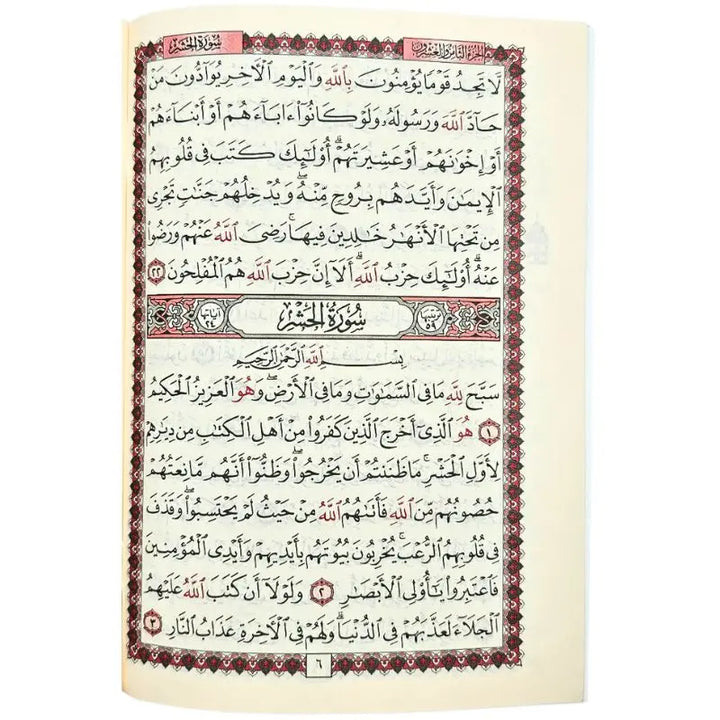 الجزء الثامن والعشرون
سورة الحشر
لَّا تَجِدُ قَوْمًا يُؤْمِنُونَ بِاللَّهِ وَالْيَوْمِ الْآخِرِ يُوَادُّونَ مَنْ
حَادَّ اللَّهَ وَرَسُولَهُ وَلَوْ كَانُوٓا۟ ءَابَآءَهُمْ أَوْ أَبْنَآءَهُمْ
أَوْ إِخْوَٰنَهُمْ أَوْ عَشِيرَتَهُمْ ۚ أُو۟لَٰٓئِكَ كَتَبَ فِى قُلُوبِهِمُ
الْإِيمَٰنَ وَأَيَّدَهُم بِرُوحٍ مِّنْهُ ۖ وَيُدْخِلُهُمْ جَنَّٰتٍ تَجْرِى
مِن تَحْتِهَا الْأَنْهَٰرُ خَٰلِدِينَ فِيهَا ۚ رَضِىَ اللَّهُ عَنْهُمْ وَرَضُوا۟
عَنْهُ ۚ أُو۟لَٰٓئِكَ حِزْبُ اللَّهِ ۚ أَلَآ إِنَّ حِزْبَ اللَّهِ هُمُ الْمُفْلِحُونَ ٢٢
ترتيبها ٥٩ سُورَةُ الحَشْرِ آياتها ٢٤
بِسْمِ اللَّهِ الرَّحْمَٰنِ الرَّحِيمِ
سَبَّحَ لِلَّهِ مَا فِى السَّمَٰوَٰتِ وَمَا فِى الْأَرْضِ ۖ وَهُوَ الْعَزِيزُ الْحَكِيمُ
١ هُوَ الَّذِىٓ أَخْرَجَ الَّذِينَ كَفَرُوا۟ مِنْ أَهْلِ الْكِتَٰبِ مِن دِيَٰرِهِمْ
لِأَوَّلِ الْحَشْرِ ۚ مَا ظَنَنتُمْ أَن يَخْرُجُوا۟ ۖ وَظَنُّوٓا۟ أَنَّهُم مَّانِعَتُهُمْ
حُصُونُهُم مِّنَ اللَّهِ فَأَتَىٰهُمُ اللَّهُ مِنْ حَيْثُ لَمْ يَحْتَسِبُوا۟ ۖ وَقَذَفَ
فِى قُلُوبِهِمُ الرُّعْبَ ۚ يُخْرِبُونَ بُيُوتَهُم بِأَيْدِيهِمْ وَأَيْدِى الْمُؤْمِنِينَ
فَاعْتَبِرُوا۟ يَٰٓأُو۟لِى الْأَبْصَٰرِ ٢ وَلَوْلَآ أَن كَتَبَ اللَّهُ عَلَيْهِمُ
الْجَلَآءَ لَعَذَّبَهُمْ فِى الدُّنْيَا ۖ وَلَهُمْ فِى الْآخِرَةِ عَذَابُ النَّارِ ٣
٦